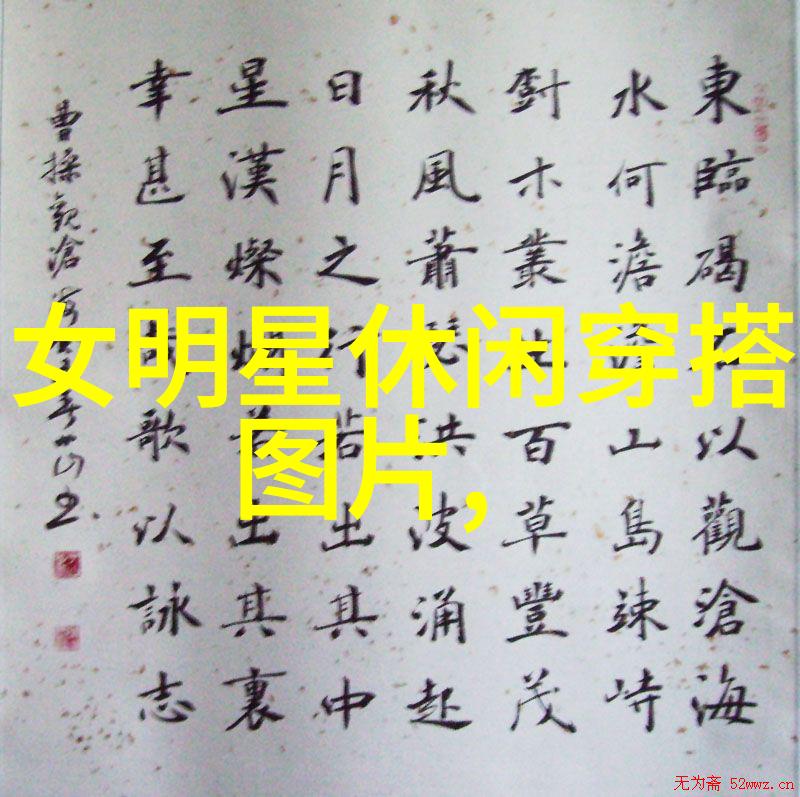 東臨碣石以觀滄海
水何澹澹山島竦峙
樹木叢生百草豐茂
秋風蕭瑟洪波涌起
日月之行若出其中
星漢燦爛若出其裏
幸甚至哉歌以詠志
曹操觀滄海
女明星休闲穿搭
图片,
无为斋 52wwz.cn